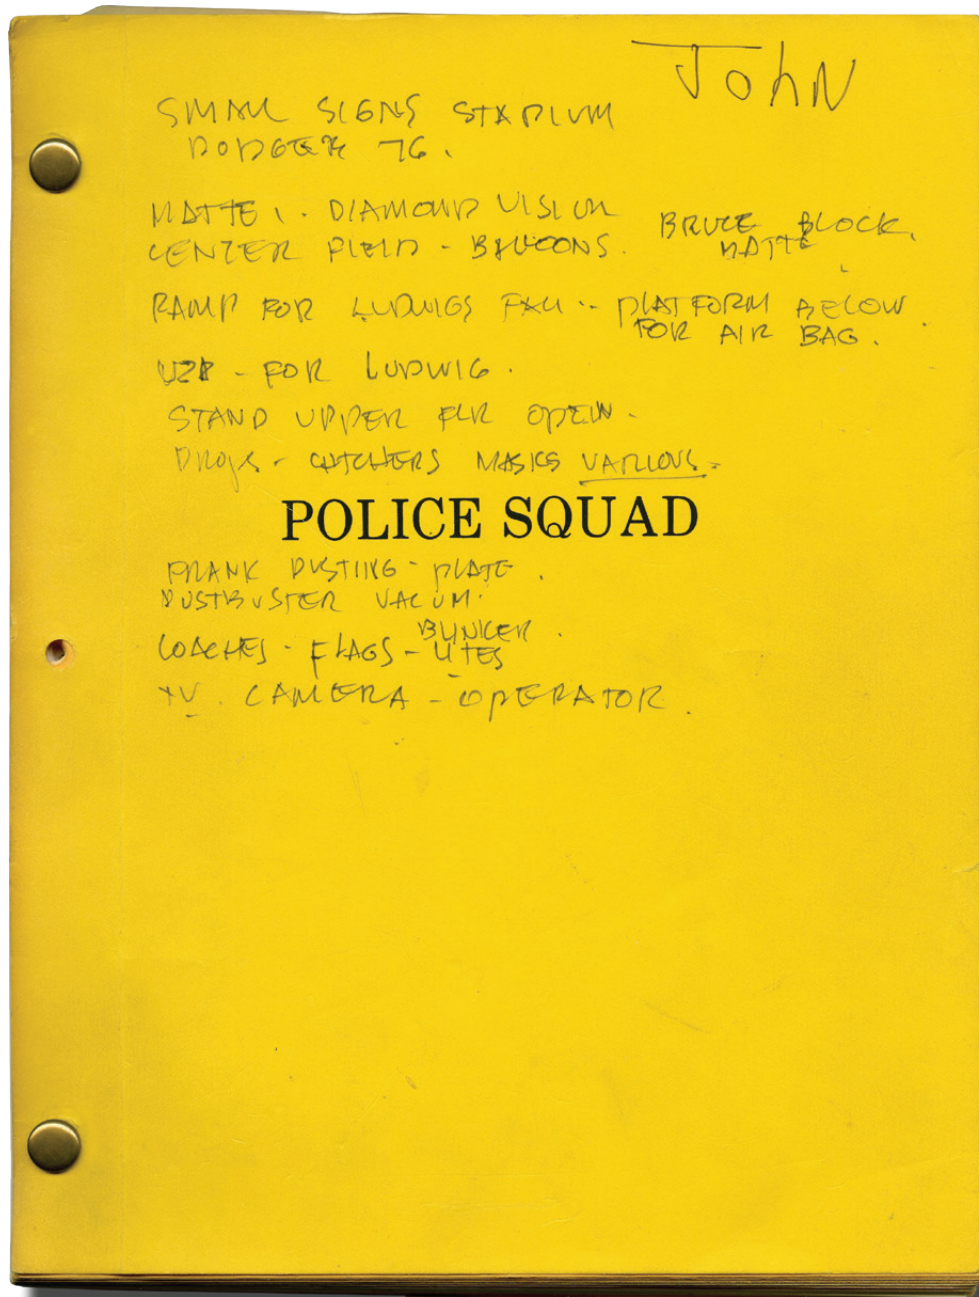 JOhN
SMALL SIGNS STADIUM
DODGER 76.
MATTE 1. DIAMOND VISION
CENTER FIELD - BALLOONS.
BRUCE BLOCK.
MATTE
RAMP FOR LUDWIGS FALL -- PLATFORM BELOW
FOR AIR BAG.
UZI - FOR LUDWIG.
STAND UPPER FLR OPEN -
PROPS - CATCHERS MASKS VARIOUS -
POLICE SQUAD
FRANK DUSTING - PLATE.
DUSTBUSTER VACUM.
COACHES - FLAGS - BUNKER.
TV. CAMERA - OPERATOR.